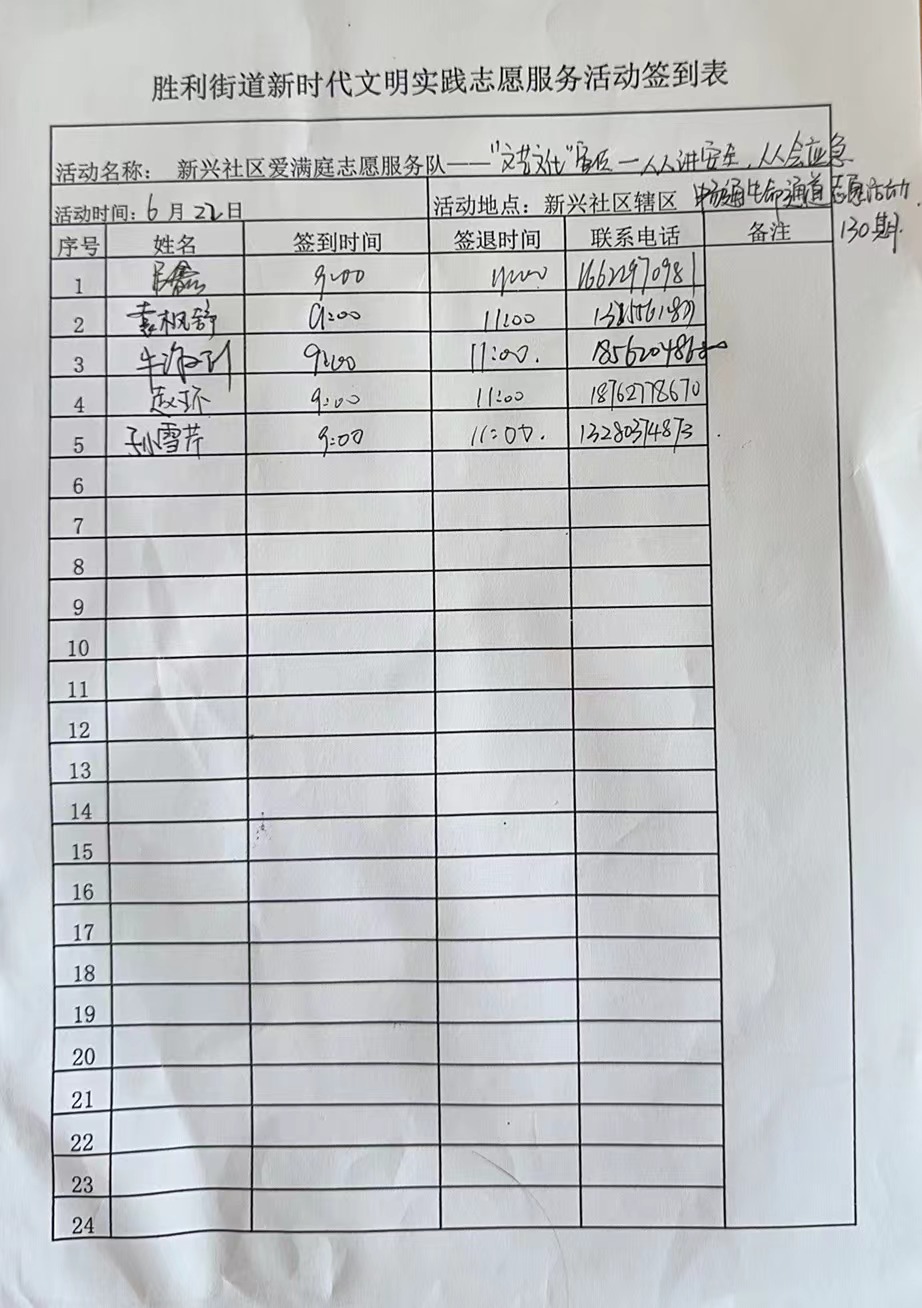 胜利街道新时代文明实践志愿服务活动签到表
活动名称： 新兴社区爱满庭志愿服务队——人人讲安全，人人会应急
活动时间：6月22日 活动地点：新兴社区辖区 畅通生命通道志愿活动
130期.
序号 姓名 签到时间 签退时间 联系电话 备注
1 9:00 16622970981
2 袁枫舒 9:00 11:00
3 9:00 11:00.
4 赵环 9:00 11:00 18762778670
5 孙雪芹 9:00 11:00. 13280374873
6
7
8
9
10
11
12
13
14
15
16
17
18
19
20
21
22
23
24